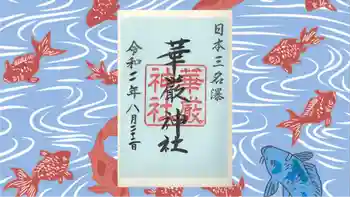 日本三名瀑
華厳神社
令和二年八月二十二日
華厳
神社